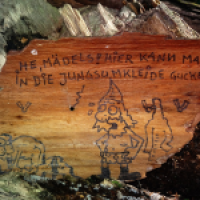 HE, MÄDELS, HIER KANN MA
IN DIE JUNGSUMKLEIDE GUCKE